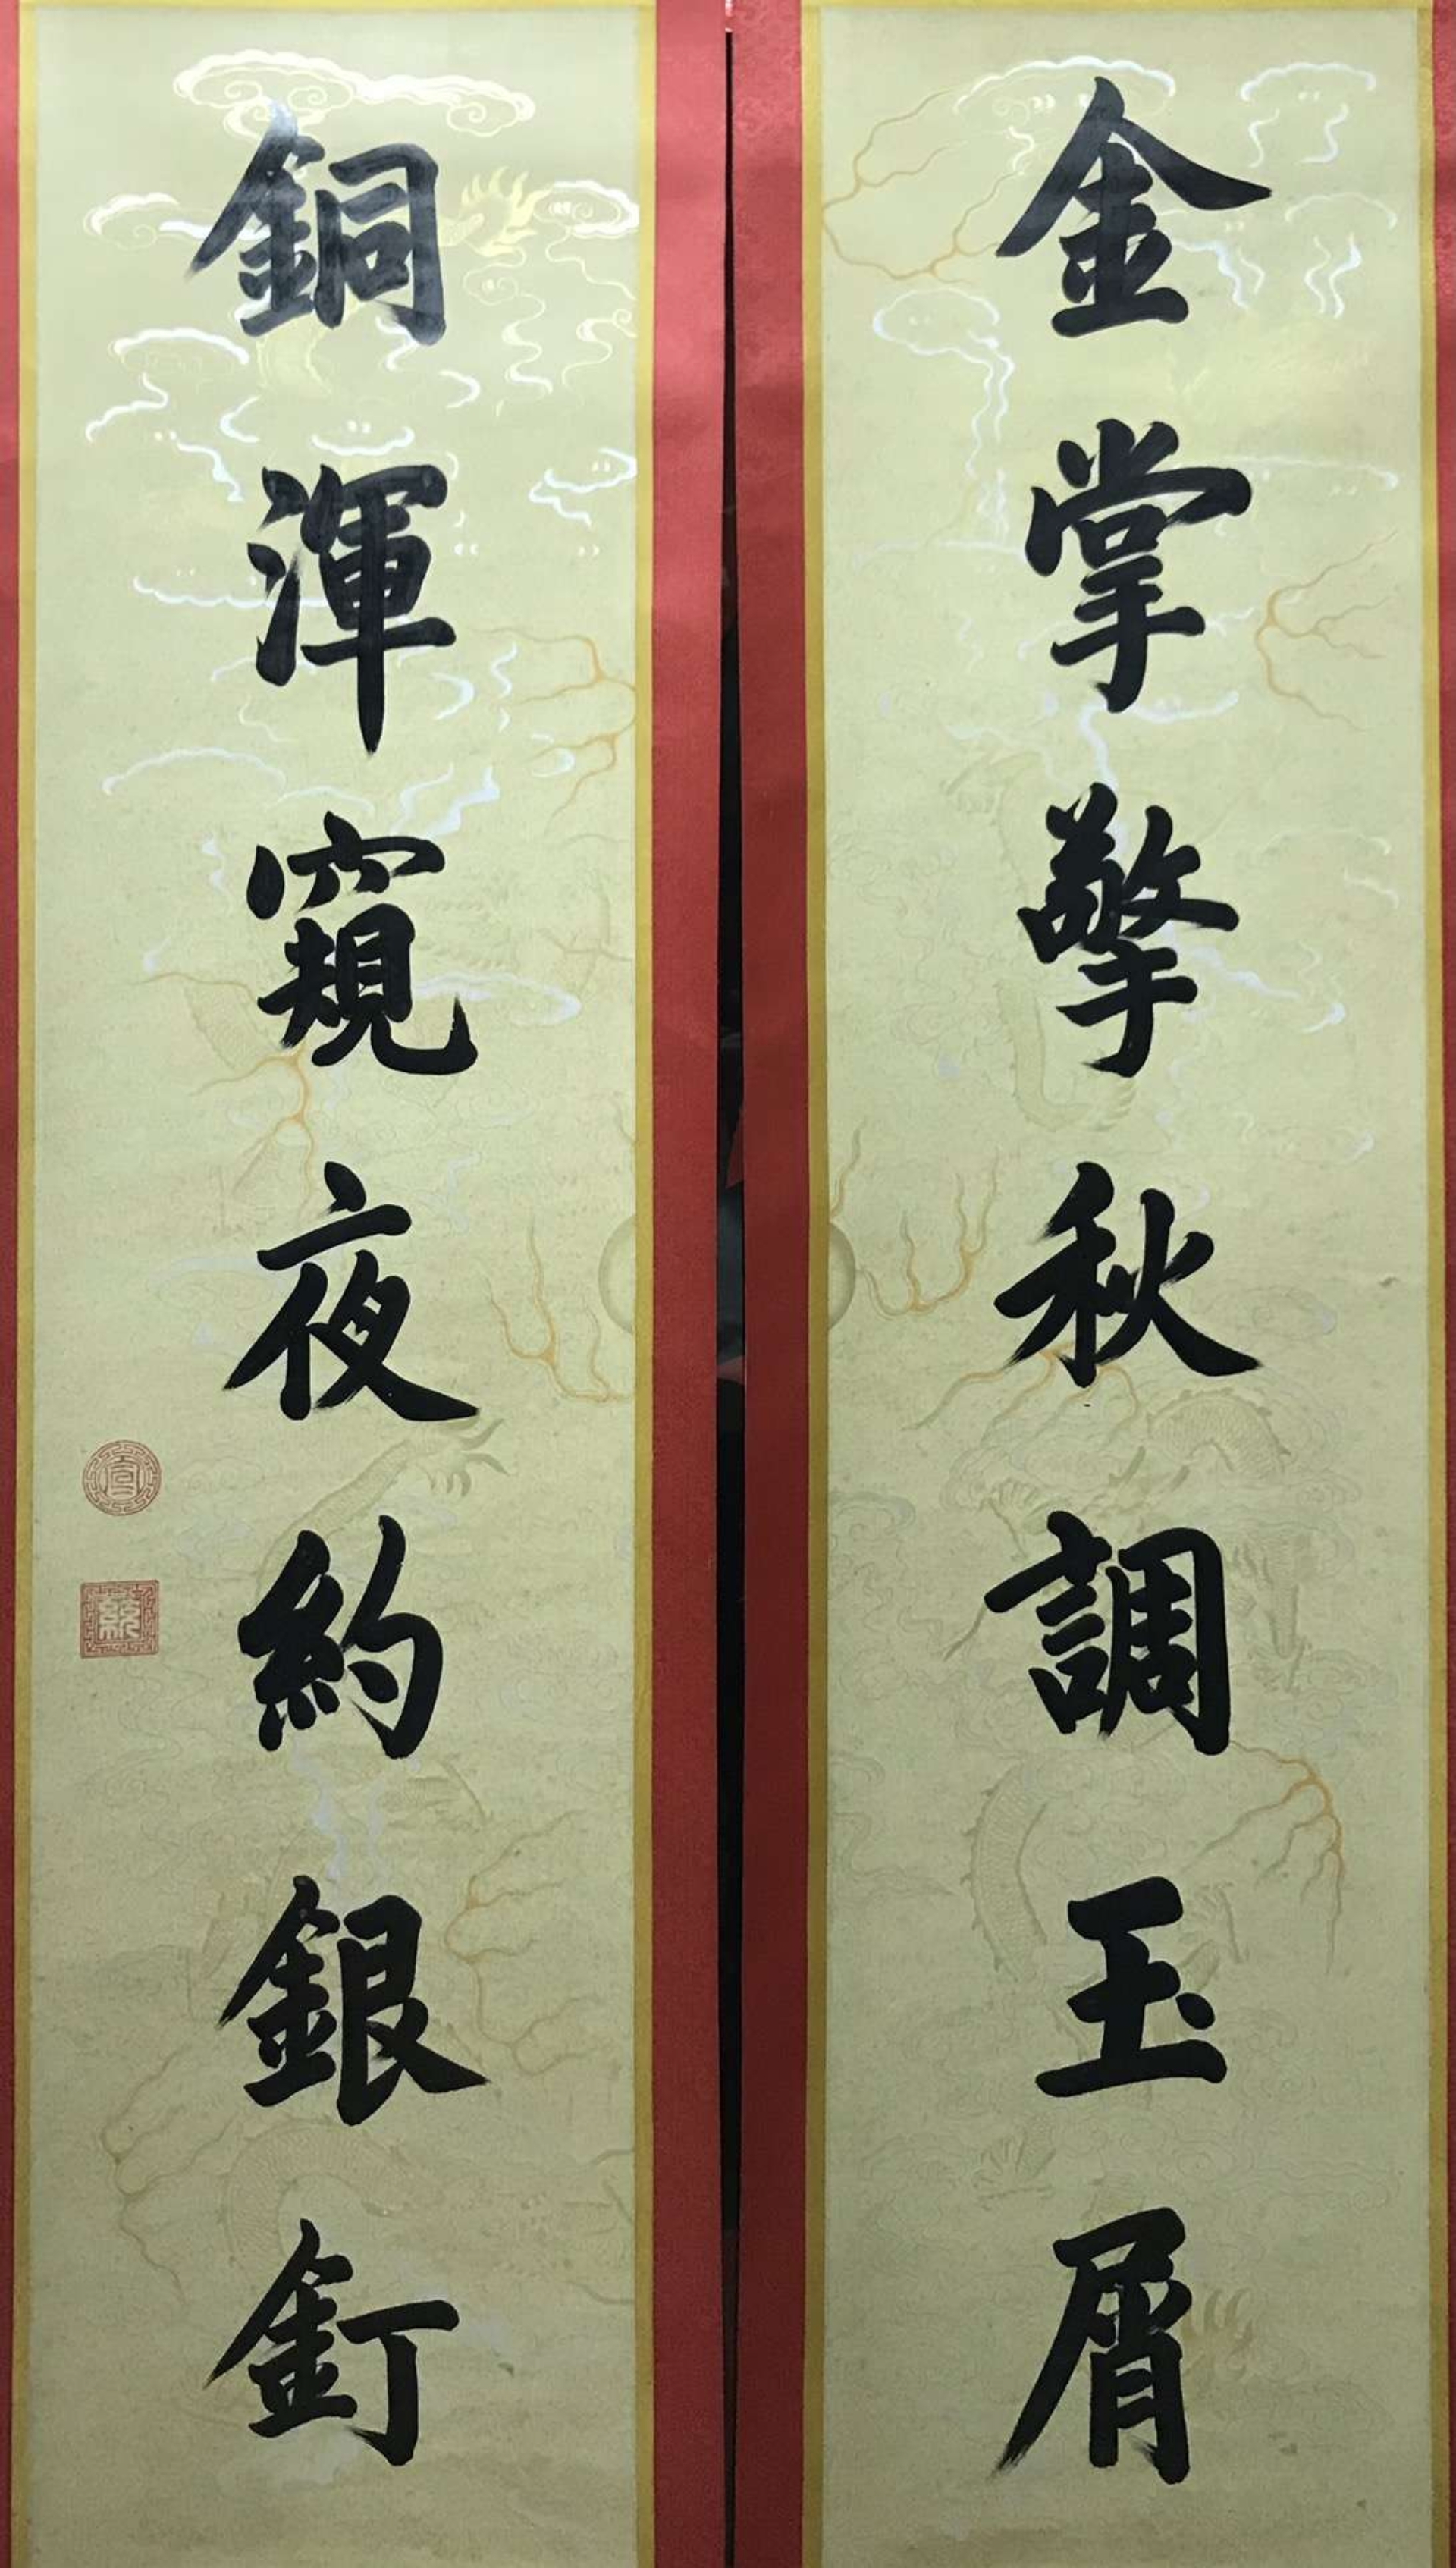 金掌擎秋調玉屑
銅渾窺夜約銀釘
宣
統